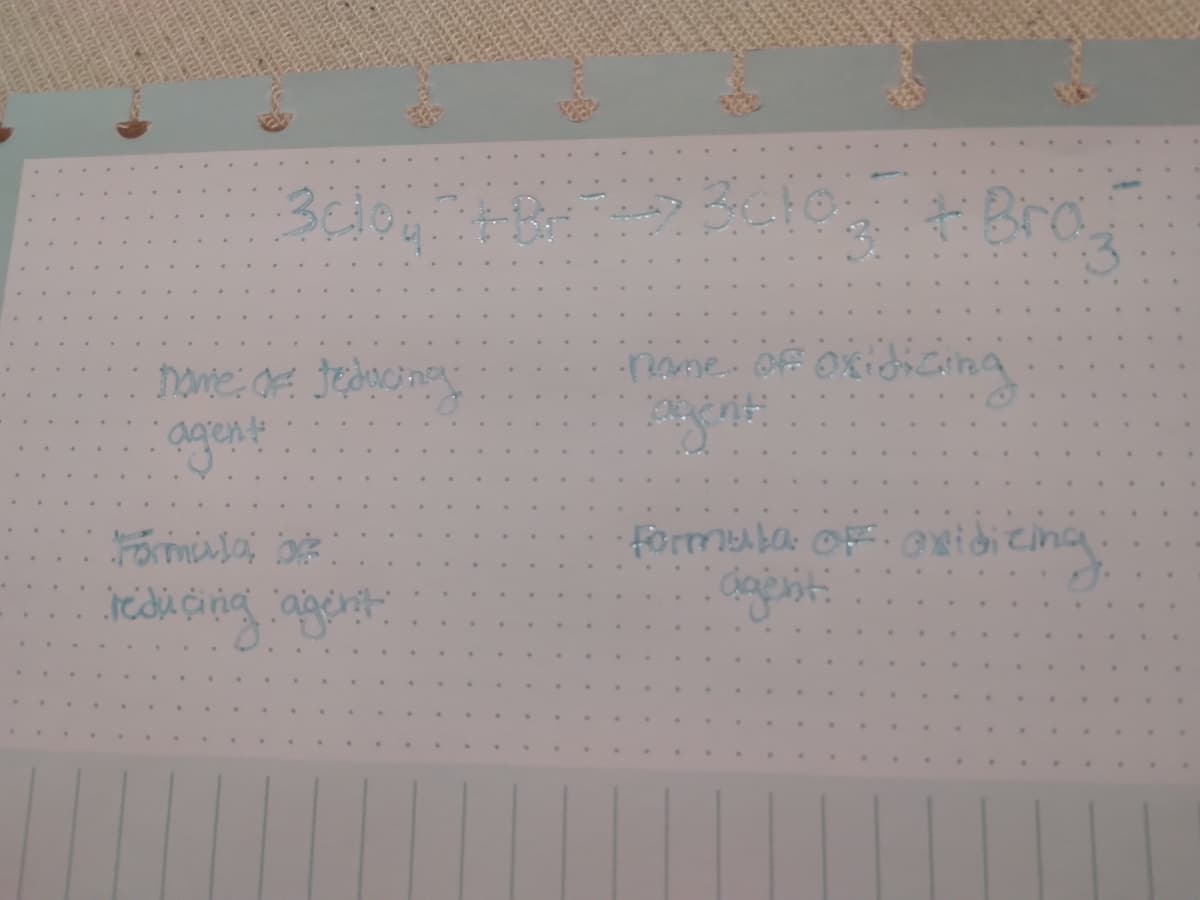 3ClO₄⁻ + Br⁻ → 3ClO₃⁻ + BrO₃⁻
name of reducing
agent
name of oxidizing
agent
Formula of
reducing agent
formula of oxidizing
agent